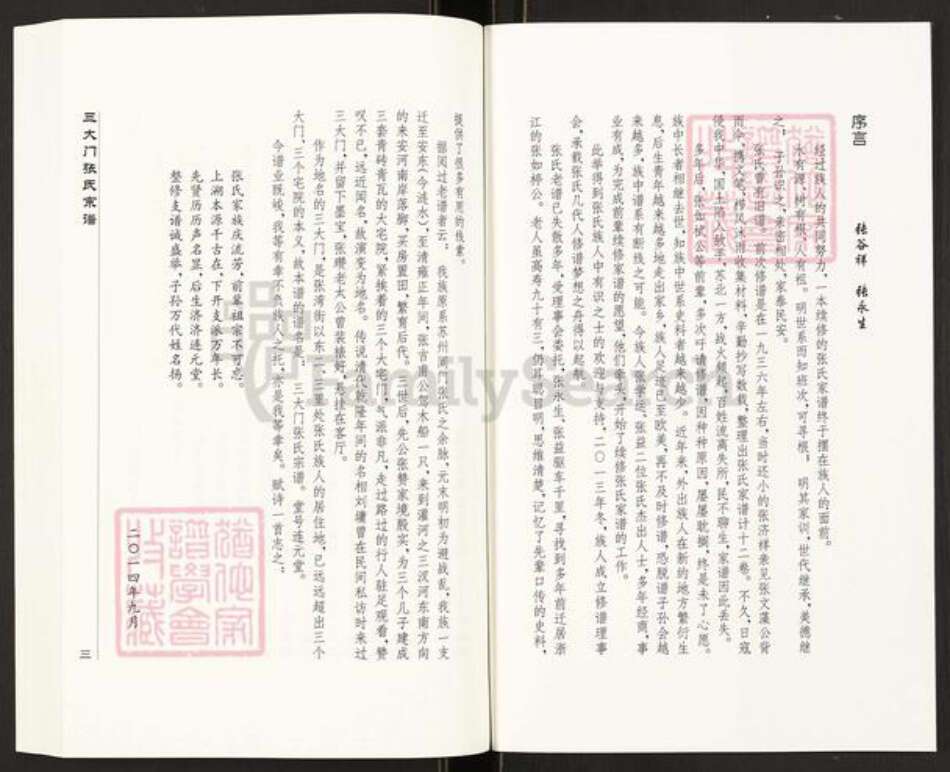 序言
张谷祥 张永生
经过族人的共同努力，一本续修的张氏家谱终于摆在族人的面前。
水有源，树有根，人有祖。明世系而知班次，可寻根；明其家训，世代继承，美德继
之；子若识之，亲密相处，家泰民安。
张氏曾有旧谱。前次修谱是在一九三六年左右，当时还小的张济祥亲见张文藻公背
雨伞，携文笔，栉风沐雨收集材料，辛勤抄写数载，整理出张氏家谱计十二卷。不久，日寇
侵我中华，国土陷入敌手，苏北一方，战火频起，百姓流离失所，民不聊生，家谱因此丢失。
多年后，张如栻公等前辈，多次吁请修谱，因种种原因，屡屡耽搁，终是未了心愿。
族中长者相继去世，知族中世系史料者越来越少。近年来，外出族人在新的地方繁衍生
息，后生青年越来越多地走出家乡，族人足迹已至欧美，再不及时修谱，恐脱谱子孙会越
来越多，族中谱系有断线之可能。今族人张学运、张益二位张氏杰出人士，多年经商，事
业有成，为完成前辈续修家谱的愿望，他们牵头开始了续修张氏家谱的工作。
此举得到张氏族人中有识之士的欢迎与支持，二〇一三年冬，族人成立修谱理事
会，承载张氏几代人修谱梦想之舟得以起航。
张氏老谱已失散多年，受理事会委托，张永生、张益驱车千里，寻找到多年前迁居浙
江的张如椁公。老人虽高寿九十有三，仍耳聪目明，思维清楚，记忆了先辈口传的史料，
提供了很多有用的线索。
据阅过老谱者云：我族原系苏州阊门张氏之余脉，元末明初为避战乱，我族一支
迁至安东（今涟水）。至清雍正年间，张吉甫公驾木船一只，来到灌河之三汊河东南方向
的来安河南岸落脚，买房置田，繁育后代。三世后，先公张赞家境殷实，为三个儿子建成
三套青砖青瓦的大宅院，紧挨着的三个大宅门，气派非凡，走过路过的行人驻足观看，赞
叹不已，远近闻名，故演变为地名。传说清代乾隆年间的名相刘墉曾在民间私访时来过
三大门，并留下墨宝，张瓒老太公曾装裱好，悬挂在客厅。
作为地名的三大门，是张湾街以东二、三里处张氏族人的居住地，已远远超出三个
大门、三个宅院的本义，故本谱的谱名是：三大门张氏宗谱。堂号连元堂。
今谱业既峻，我等有幸不负族人之托，亦是我等幸矣。赋诗一首志之：
张氏家族庄流芳，前辈祖宗不可忘。
上溯本源千古在，下开支派万年长。
先贤历历声名显，后生济济连元堂。
整修支谱诚盛举，子孙万代姓名扬。
二〇一四年九月
三大门张氏宗谱
三
FamilySearch